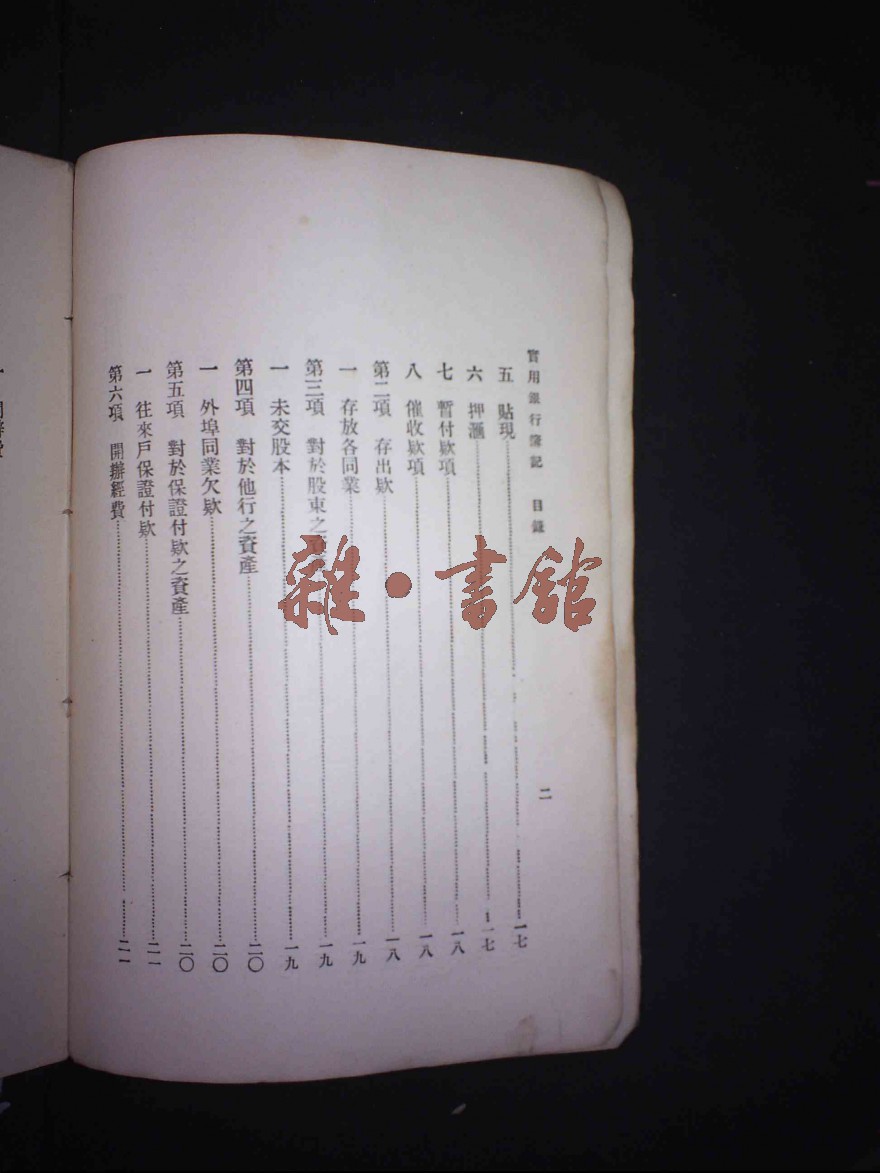 實用銀行簿記 目錄 二
五 貼現 一七
六 押滙 一七
七 暫付欵項 一八
八 催收欵項 一八
第二項 存出欵 一八
一 存放各同業 一九
第三項 對於股東之 一九
一 未交股本 一九
第四項 對於他行之資產 二〇
一 外埠同業欠欵 二〇
第五項 對於保證付欵之資產 二〇
一 往來戶保證付欵 二一
第六項 開辦經費 二一
雜·書館